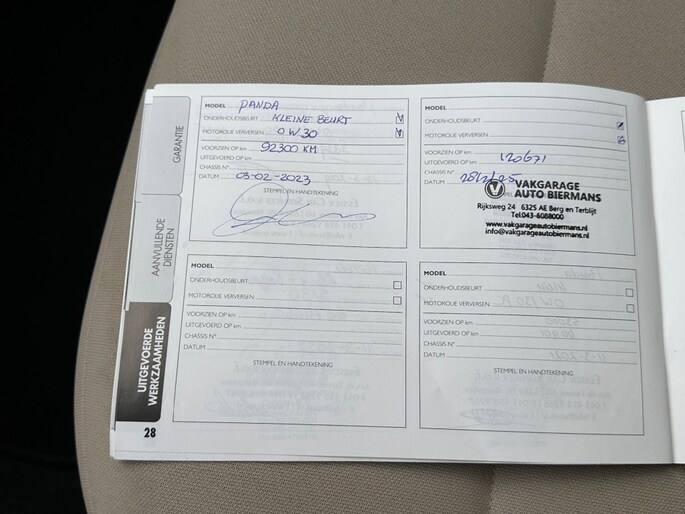 GARANTIE
AANVULLENDE
DIENSTEN
UITGEVOERDE
WERKZAAMHEDEN
28
MODEL PANDA
ONDERHOUDSBEURT KLEINE BEURT
MOTOROLIE VERVERSEN 0W30
VOORZIEN OP km 92300 KM
UITGEVOERD OP km
CHASSIS N°
DATUM 03-02-2023
STEMPEL EN HANDTEKENING
MODEL
ONDERHOUDSBEURT
MOTOROLIE VERVERSEN
VOORZIEN OP km
UITGEVOERD OP km 120671
CHASSIS N°
DATUM
VAKGARAGE
AUTO BIERMANS
Rijksweg 24 6325 AE Berg en Terblijt
Tel.043-6088000
www.vakgarageautobiermans.nl
info@vakgarageautobiermans.nl
MODEL
ONDERHOUDSBEURT
MOTOROLIE VERVERSEN
VOORZIEN OP km
UITGEVOERD OP km
CHASSIS N°
DATUM
STEMPEL EN HANDTEKENING
MODEL
ONDERHOUDSBEURT
MOTOROLIE VERVERSEN
VOORZIEN OP km
UITGEVOERD OP km
CHASSIS N°
DATUM
STEMPEL EN HANDTEKENING